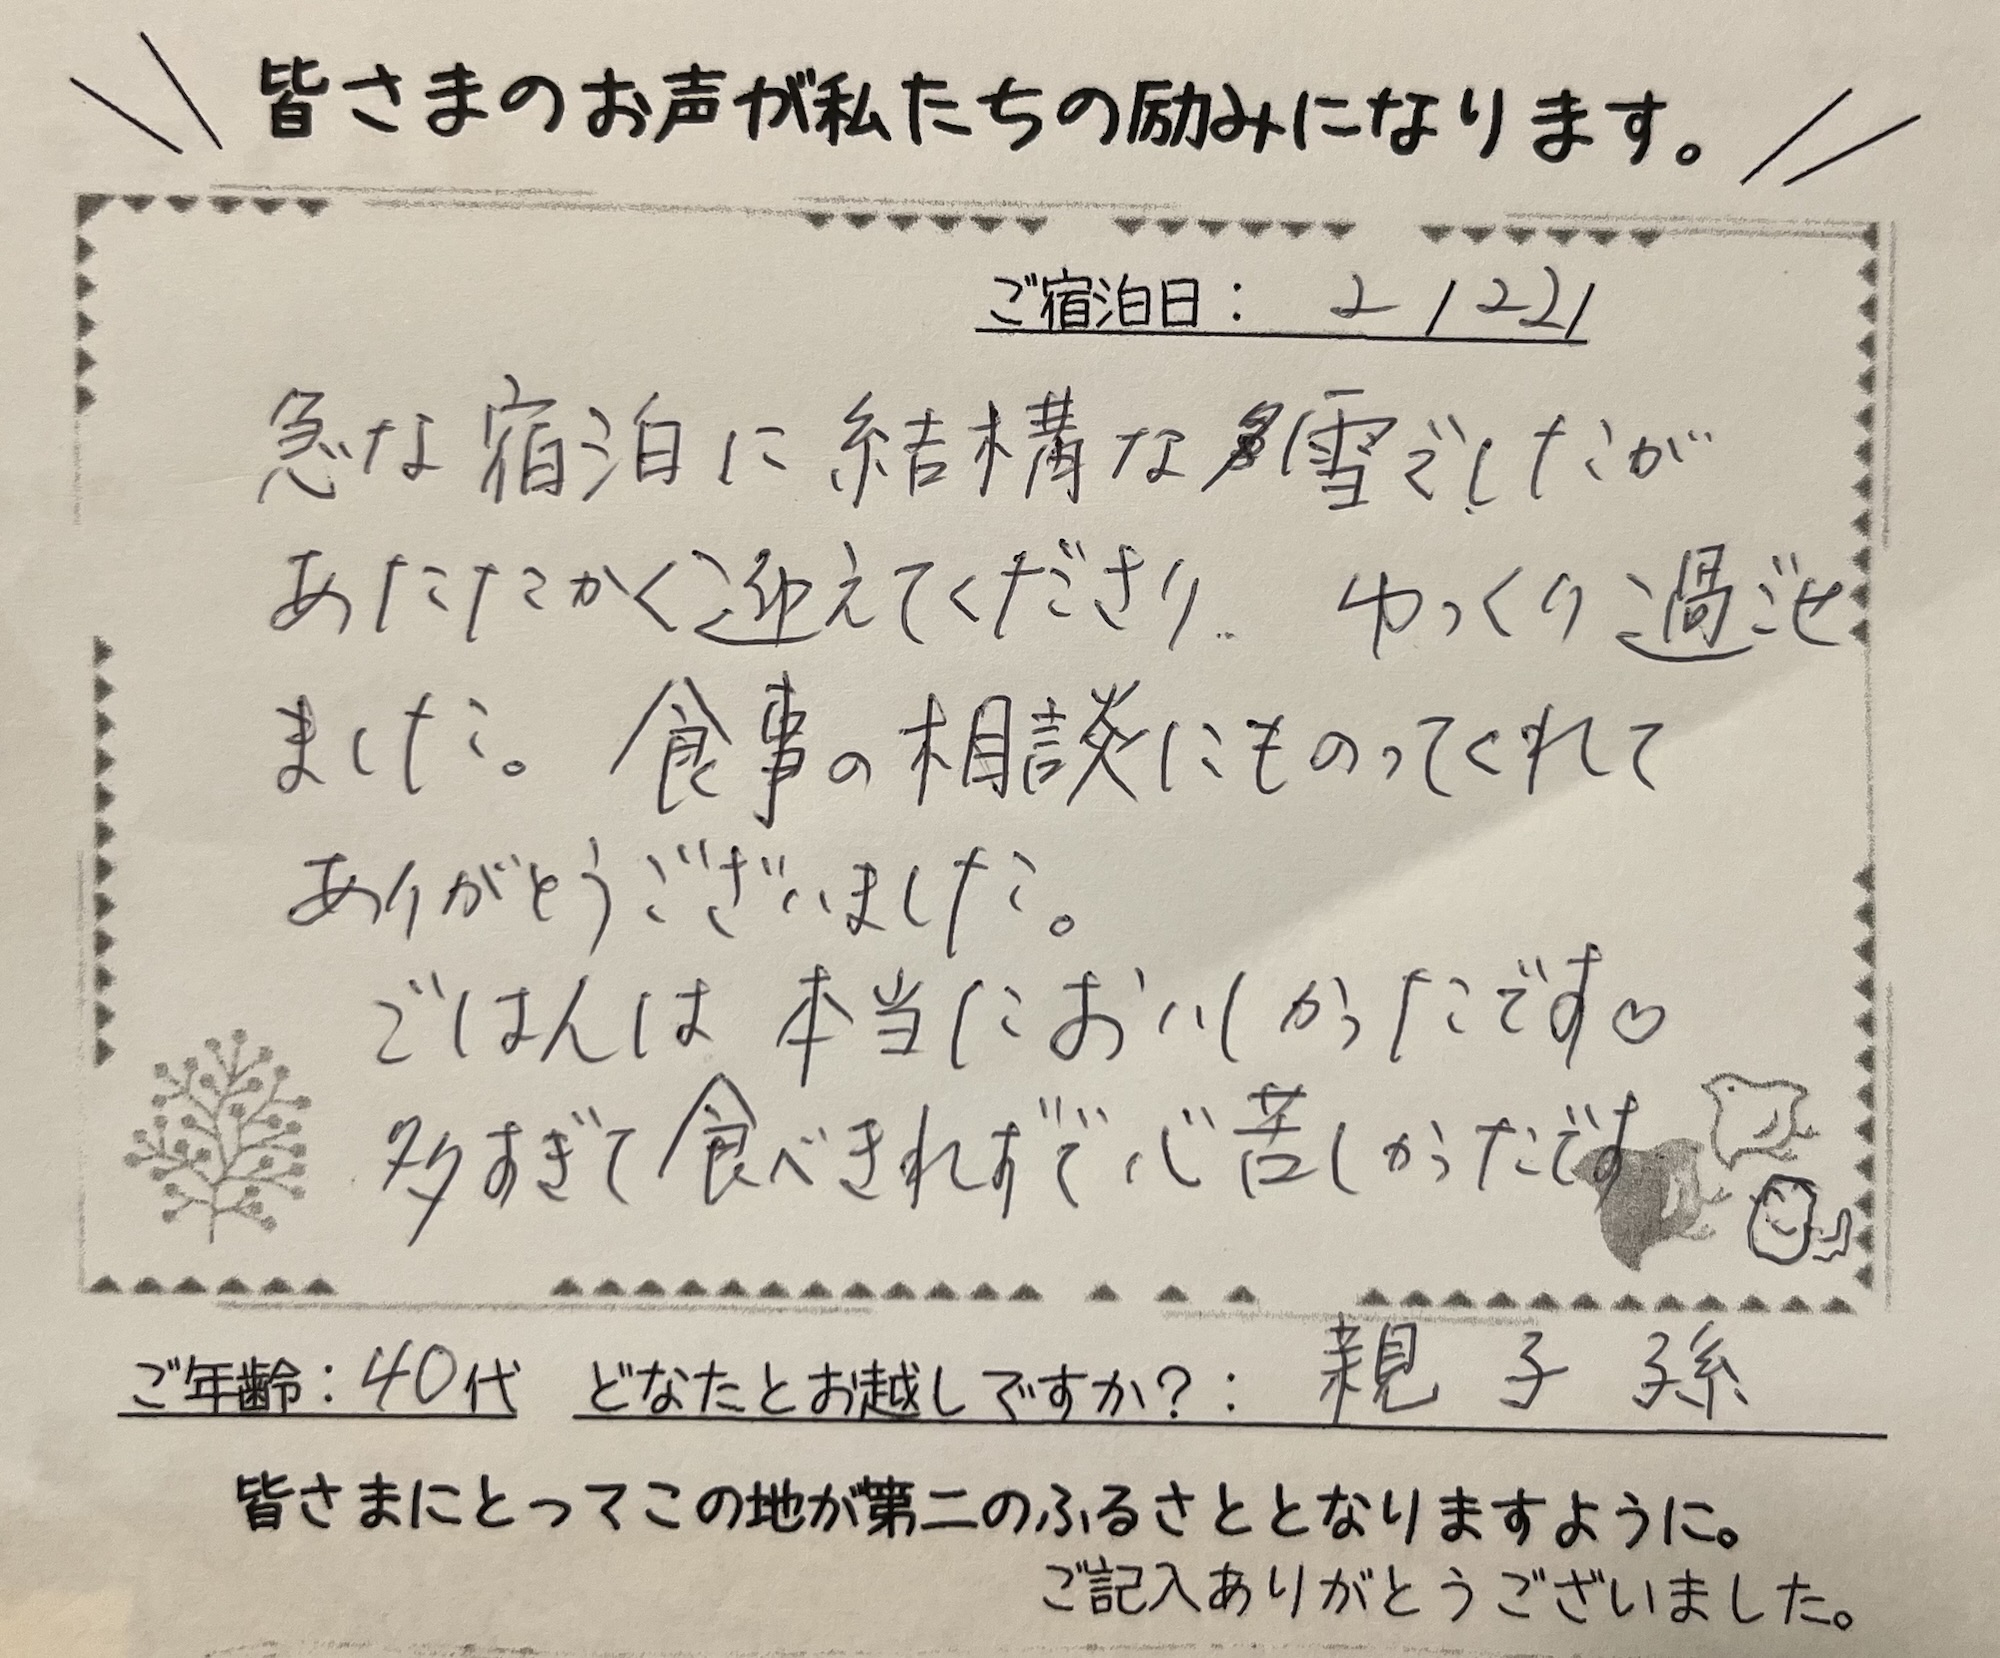 皆さまのお声が私たちの励みになります。
ご宿泊日： 2/221
急な宿泊に結構な雪でしたが
あたたかく迎えてくださり、ゆっくり過ごせ
ました。食事の相談にものってくれて
ありがとうございました。
ごはんは本当においしかったです♡
多すぎて食べきれずで心苦しかったです
ご年齢：40代 どなたとお越しですか？： 親 子 孫
皆さまにとってこの地が第二のふるさととなりますように。
ご記入ありがとうございました。